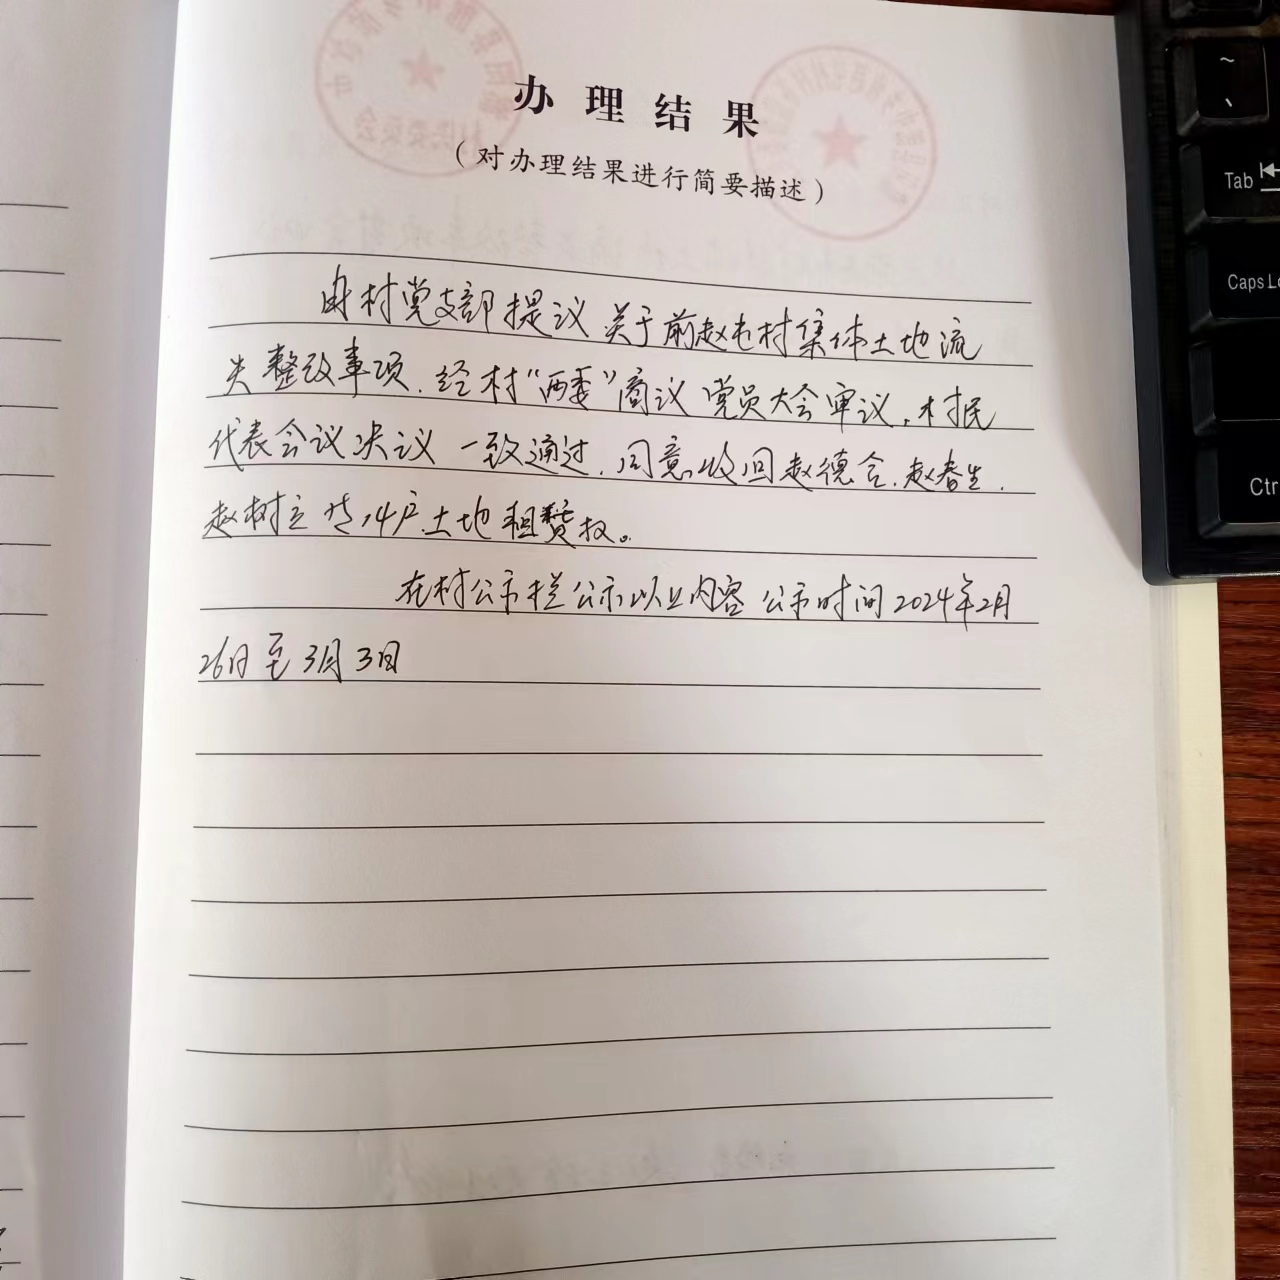 办理结果
（对办理结果进行简要描述）
由村党支部提议关于前赵屯村集体土地流
失整改事项.经村“两委”商议党员大会审议,村民
代表会议决议一致通过.同意收回赵德合.赵春生.
赵树立等14户土地租赁权。
在村公示栏公示以上内容公示时间2024年2月
26日至3月3日
~
、
Tab
Caps Lo
Ctr